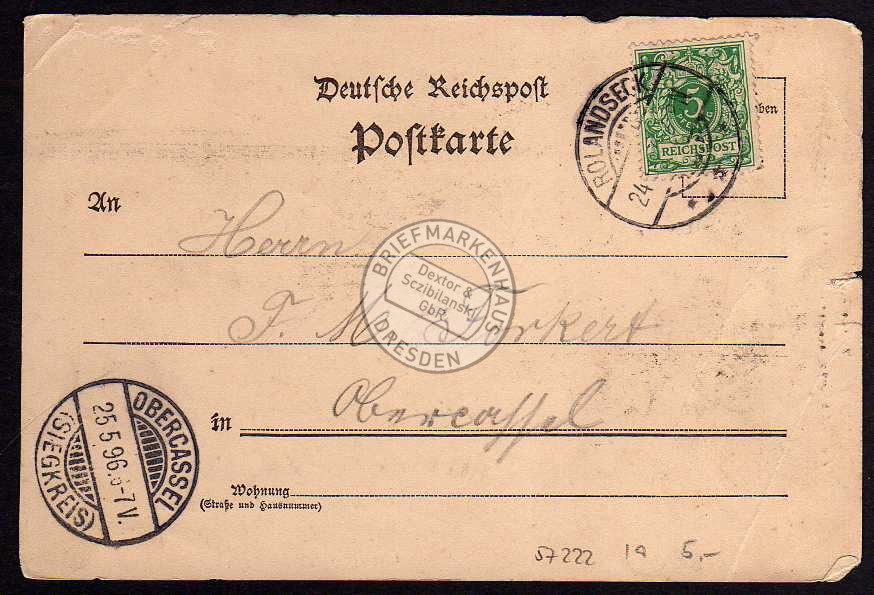 Deutsche Reichspost
Postkarte
ROLANDSECK
24
5
REICHSPOST
An
Herrn
F. M. Forkert
in Obercassel
Wohnung
(Straße und Hausnummer)
OBERCASSEL
25.5.96. 6-7 V.
(SIEGKREIS)
BRIEFMARKENHAUS
Dextor &
Sczibilanski
GbR
DRESDEN
57222 1a 5,-